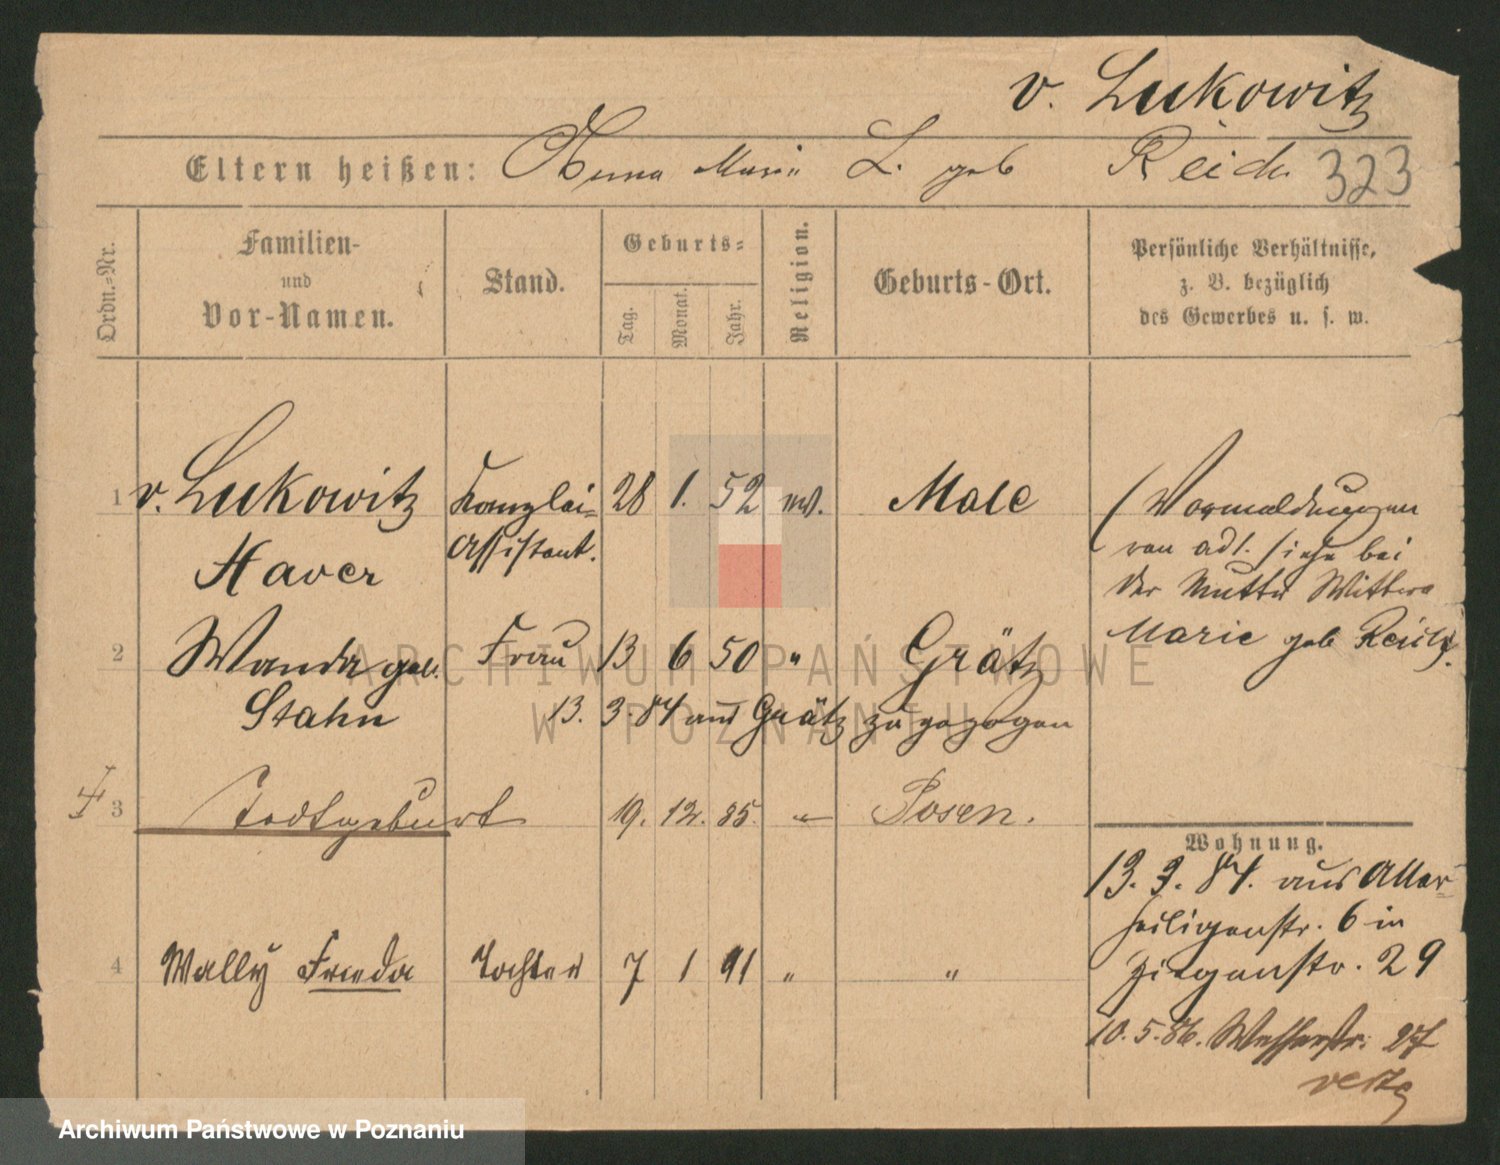 v. Lukowitz
Eltern heißen: Anna Marie L. geb Reich 323
Ordn.-Nr.
Familien-
und
Vor-Namen.
Stand.
Geburts-
Tag.
Monat.
Jahr.
Religion.
Geburts-Ort.
Persönliche Verhältnisse,
z. B. bezüglich
des Gewerbes u. s. w.
1 v. Lukowitz Kanzlei- 28 1. 52 Male
Assistant.
Xaver
2 Wanda geb. Frau 13 6 50 " Grätz
Stahn
13. 3. 84 aus Grätz zugezogen
3 Todtgeburt 19. 12. 85. Posen.
4 Wally Frieda Tochter 7 1 91 " "
(Vormeldungen
von adl. siehe bei
der Mutter Wittwe
Marie geb Reich.
Wohnung.
13. 3. 84. aus Aller-
heiligenstr. 6 in
Ziegenstr. 29
10. 5. 86. Wasserstr. 27
ARCHIWUM PAŃSTWOWE
W POZNANIU
Archiwum Państwowe w Poznaniu